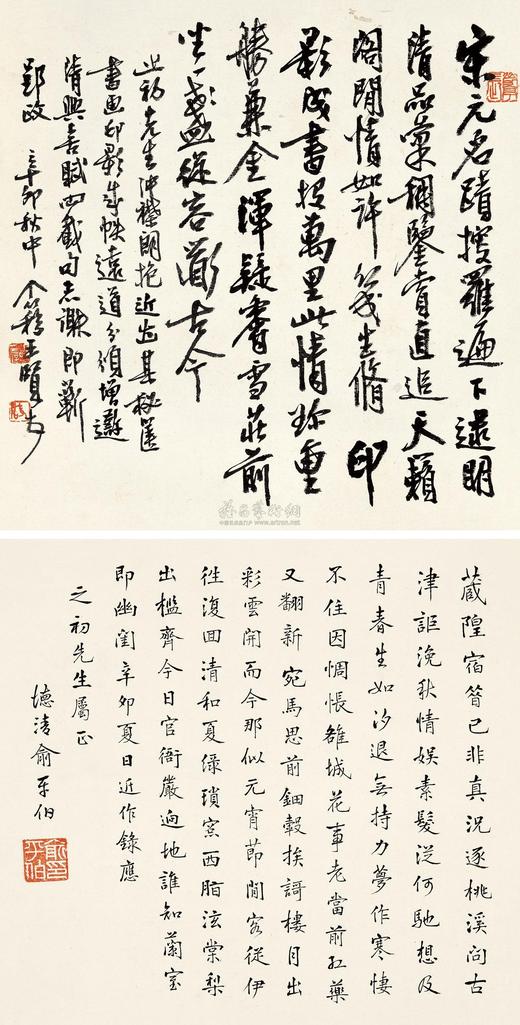 宋元名蹟搜羅遍下逮明
清品藻稠鑒賞直追天籟
閣閒情如許幾生脩 印
影成書投萬里此情珍重
勝兼金渾疑香雪莊前
坐一盞從容鬭古今
之初先生沖襟朗抱近出其秘篋
書畫印影成帙遠道分頒增遊
清興喜賦兩截句志謝即蘄
郢政 辛卯秋中 王賢
雅昌藝術網
www.artron.net
蕆隍宿箵已非真況逐桃溪問古
津詎浼秋情娛素髮從何馳想及
青春生如汐退無持力夢作寒悽
不住因惆悵雒城花事老當前紅藥
又翻新宛馬思前鈿轂挨謌樓月出
彩雲開而今那似元宵節閒客從伊
往復回清和夏淥瑣窗西脂泫棠梨
出檻齊今日官衙嚴逈地誰知蘭室
即幽閨辛卯夏日近作錄應
之初先生屬正
德清俞平伯
俞平伯